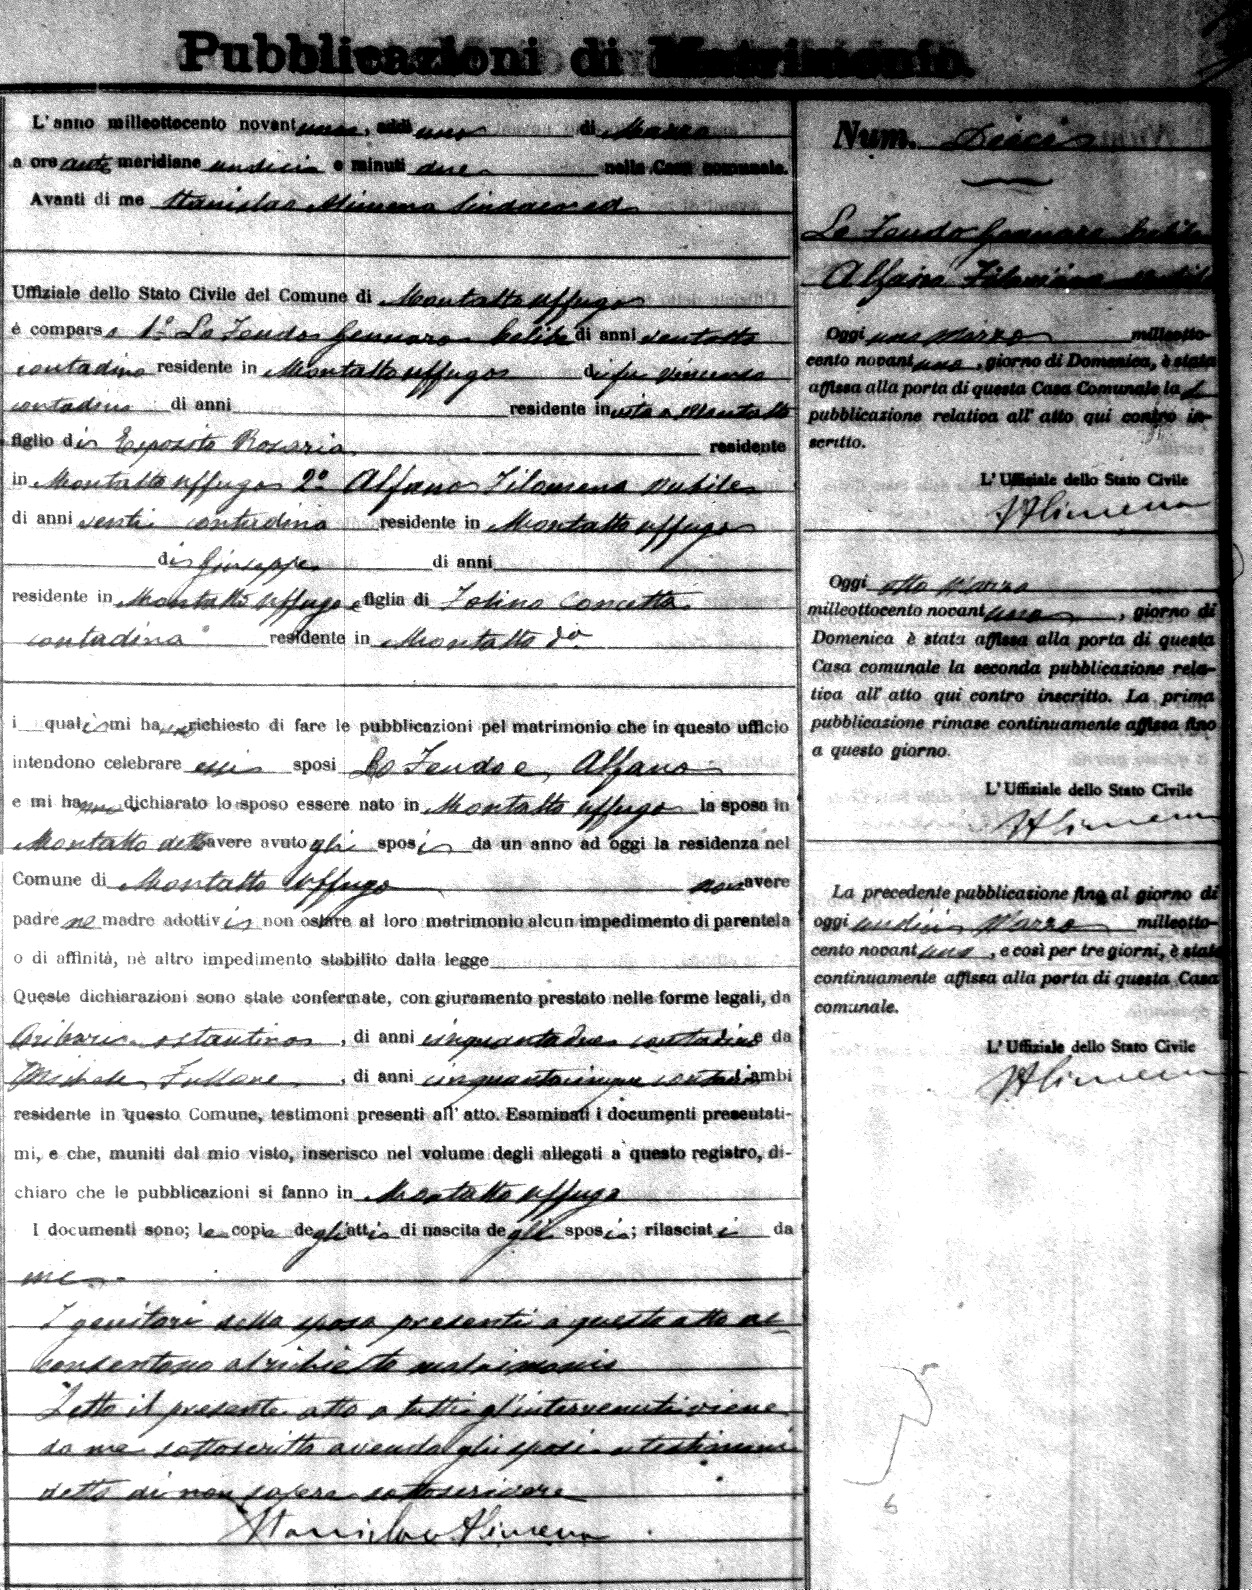 Pubblicazioni di Matrimonio.
L'anno milleottocento novantuno, addì uno di Marzo
a ore anti meridiane undici e minuti due nella Casa comunale.
Avanti di me Stanislao Alimena Sindaco ed
Uffiziale dello Stato Civile del Comune di Montalto Uffugo
è compars 1º Lo Feudo Gennaro Celibe di anni ventotto
contadino residente in Montalto Uffugo di fu Vincenzo
contadino di anni residente in Montalto
figlio di Esposito Rosaria residente
in Montalto Uffugo 2º Alfano Filomena nubile
di anni venti contadina residente in Montalto Uffugo
di Giuseppe di anni
residente in Montalto Uffugo e figlia di Concetta
contadina residente in Montalto dº
i quali mi hanno richiesto di fare le pubblicazioni pel matrimonio che in questo ufficio
intendono celebrare essi sposi Lo Feudo e Alfano
e mi hanno dichiarato lo sposo essere nato in Montalto Uffugo la sposa in
Montalto detto avere avuto gli sposi da un anno ad oggi la residenza nel
Comune di Montalto Uffugo non avere
padre ne madre adottivi non ostare al loro matrimonio alcun impedimento di parentela
o di affinità, nè altro impedimento stabilito dalla legge
Queste dichiarazioni sono state confermate, con giuramento prestato nelle forme legali, da
, di anni cinquantadue contadino e da
Michele Fullone, di anni cinquantacinque ambi
residente in questo Comune, testimoni presenti all'atto. Esaminati i documenti presentati-
mi, e che, muniti dal mio visto, inserisco nel volume degli allegati a questo registro, di-
chiaro che le pubblicazioni si fanno in Montalto Uffugo
I documenti sono; le copie degli atti di nascita degli sposi; rilasciati da
me.
I genitori della sposa presenti a questo atto ac-
consentono al richiesto matrimonio
Letto il presente atto a tutti gl'intervenuti viene
da me sottoscritto avendo gli sposi e testimoni
detto di non sapere sottoscrivere
Stanislao Alimena
Num. Dieci
Lo Feudo Gennaro Celibe
Alfano Filomena nubile
Oggi uno Marzo milleotto-
cento novantuno, giorno di Domenica, è stata
affissa alla porta di questa Casa Comunale la
pubblicazione relativa all'atto qui contro in-
scritto.
L'Uffiziale dello Stato Civile
S Alimena
Oggi otto Marzo
milleottocento novantuno, giorno di
Domenica è stata affissa alla porta di questa
Casa comunale la seconda pubblicazione rela-
tiva all'atto qui contro inscritto. La prima
pubblicazione rimase continuamente affissa fino
a questo giorno.
L'Uffiziale dello Stato Civile
S Alimena
La precedente pubblicazione fino al giorno di
oggi undici Marzo milleotto-
cento novantuno, e così per tre giorni, è stata
continuamente affissa alla porta di questa Casa
comunale.
L'Uffiziale dello Stato Civile
S Alimena
6